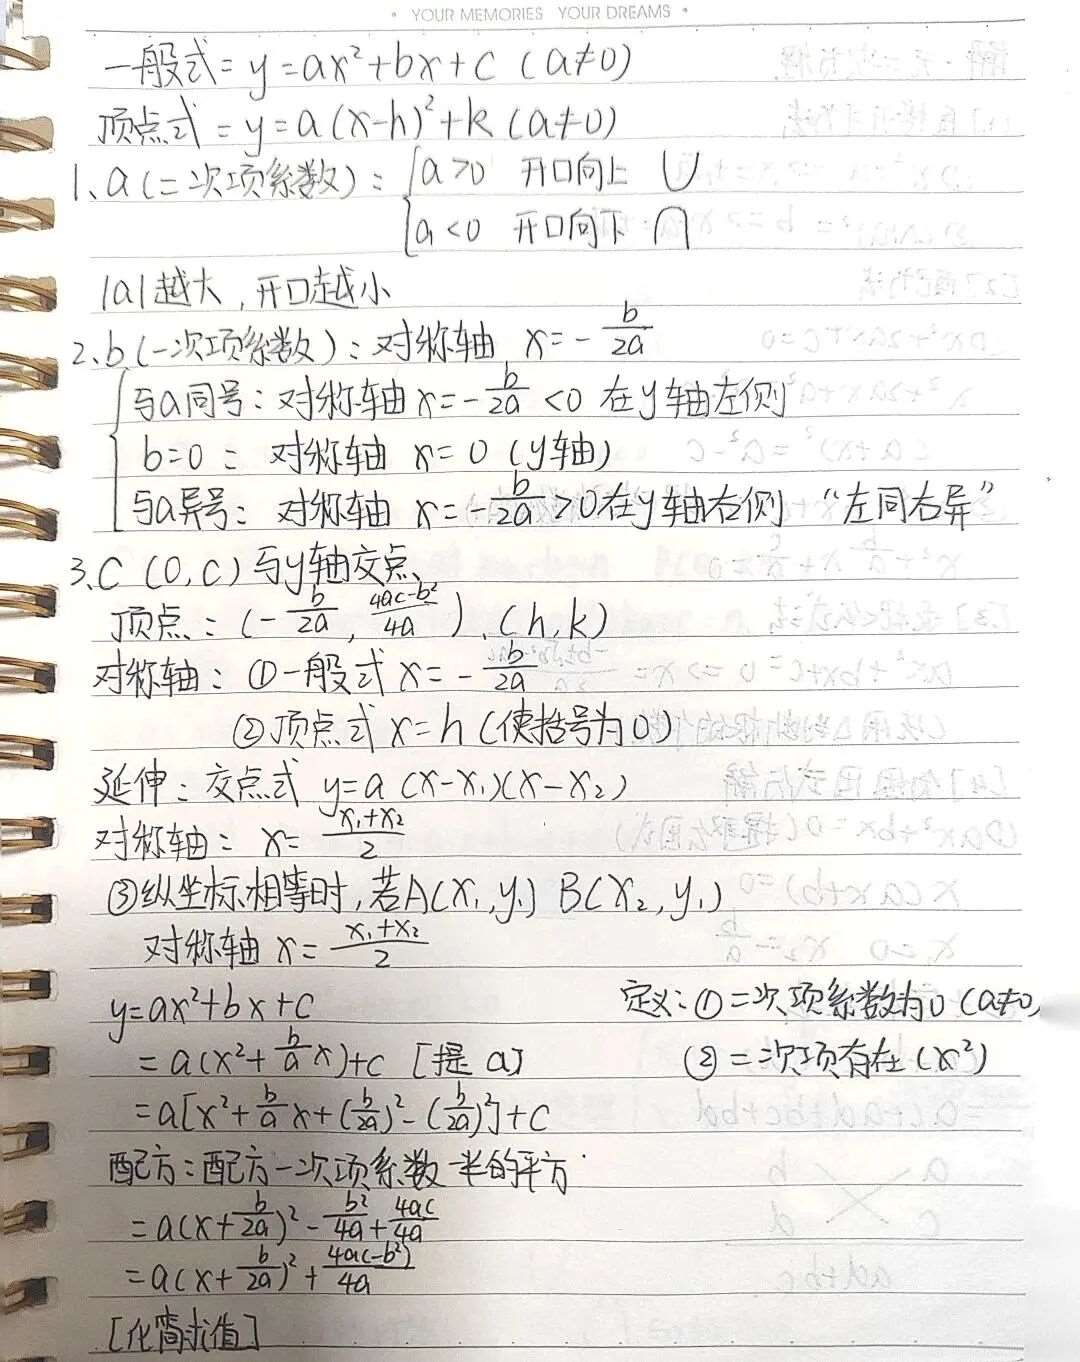 • YOUR MEMORIES YOUR DREAMS •
一般式 = y = ax² + bx + c (a≠0)
顶点式 = y = a(x-h)² + k (a≠0)
1、a(二次项系数): { a>0 开口向上 ∪
a<0 开口向下 ∩
|a|越大,开口越小
2、b(一次项系数): 对称轴 x = -b/2a
与a同号: 对称轴 x = -b/2a <0 在y轴左侧
b=0 : 对称轴 x=0 (y轴)
与a异号: 对称轴 x = -b/2a >0 在y轴右侧 “左同右异”
3、C (0,c) 与y轴交点、
顶点: (-b/2a, 4ac-b²/4a)、(h,k)
对称轴: ①一般式 x = -b/2a
②顶点式 x=h (使括号为0)
延伸: 交点式 y=a(x-x₁)(x-x₂)
对称轴: x= x₁+x₂/2
③纵坐标相等时,若A(x₁,y₁) B(x₂,y₁)
对称轴 x= x₁+x₂/2
y=ax²+bx+c
定义: ①二次项系数为0 (a≠0)
=a(x²+b/a x)+c [提a]
②二次项存在(x²)
=a[x²+b/a x+(b/2a)²-(b/2a)²]+c
配方: 配方一次项系数一半的平方
=a(x+b/2a)²-b²/4a+4ac/4a
=a(x+b/2a)²+4ac-b²)/4a
[化简求值]